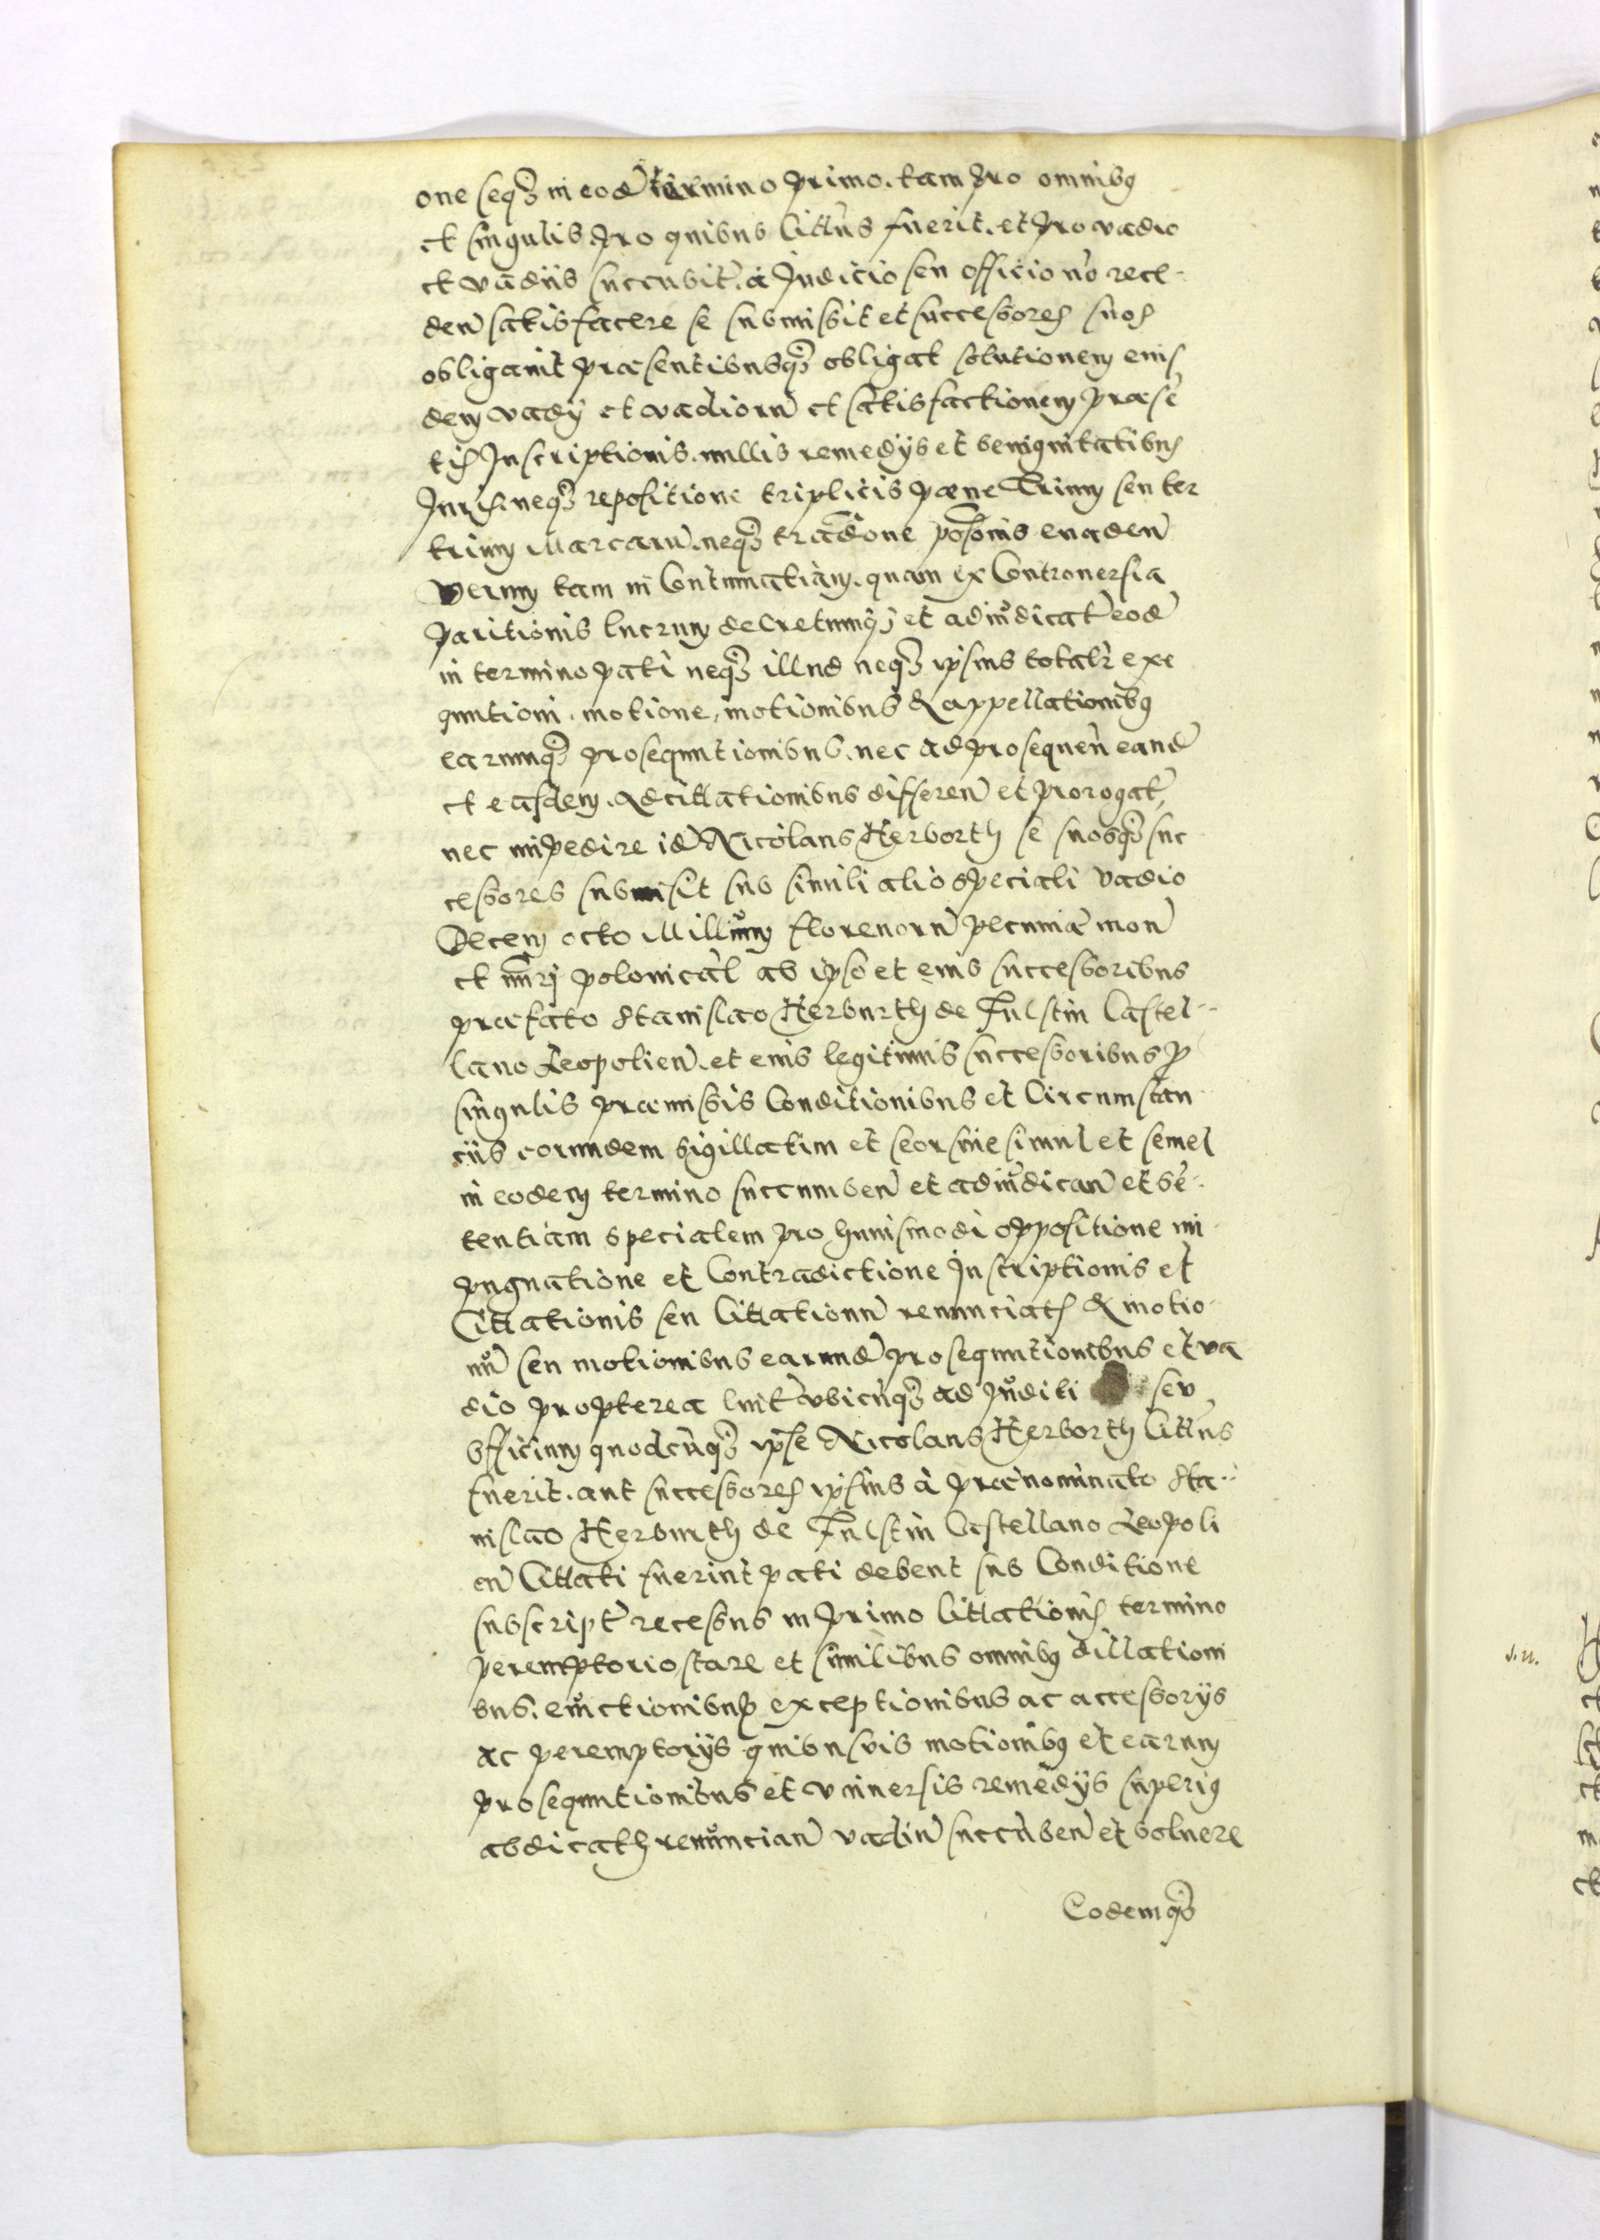 one seq₃ in eod̃ termino primo. tam pro omnibꝰ
et singulis pro quibus Citt̃us fuerit. et pro vadio
et vadiis succubit̃. á Judicio seu officio nõ rece-
deñ satisfacere se submissit et successores suos
obligavit præsentibusq₃ obligat solutionem eius
dem vadÿ et vadiorũ et satisfactionem præsẽ
tis Inscriptionis. nullis remedÿs et benignitatibus
Juris. neq₃ repositione triplicis pæne Trium seu ter
trium Marcarũ. neq₃ tradõne possõnis evadeñ
Verum tam in Contumatiam. quam ex Controuersia
paritionis lucrum decretumq₃ et adiudicat̃ eod̃
in termino pati neq₃ illud neq₃ ipsius totali exe
quutioni. motione, motionibus & appellationibꝰ
earumq₃ prosequutionibus. nec ad prosequeñ eand̃
et easdem. Ad cittationibus differeñ et prorogat̃,
nec impedire id̃ Nicolaus Herborth se suosq₃ suc
cessores submisit sub simili alio speciali vadio
Decem octo Millium florenorũ pecuniæ moñ
et nrĩ polonical̃ ab ipso et eius successoribus
præfato Stanislao Herburth de Fulstin Castel-
lano Leopolieñ. et eius legitimis successoribus ꝓ
singulis præmissis Conditionibus et Circumstan
ciis eorumdem sigillatim et seorsiue simul et semel
in eodem termino succumbeñ et adiudicañ et sẽ-
tentiam specialem pro huiusmodi oppositione im
pugnatione et Contradictione Inscriptionis et
Cittationis seu Cittationũ renunciat̃ & motio-
nũ seu motionibus earund̃ prosequutionibus et va
dio propterea luit̃ vbicũq₃ ad Juditi seu
officium quodcũq₃ ipse Nicolaus Herborth Citt̃us
fuerit. aut successores ipsius à prænominato Sta-
nislao Herburth de Fulstin Castellano Leopoli
eñ Cittati fuerint pati debent sub Conditione
subscript̃ recessus in primo Cittationis termino
peremptorio stare et similibus omnibꝰ dillationi
bus. euictionibus exceptionibus ac accessorÿs
ac peremptorÿs quibusuis motionibꝰ et earum
prosequutionibus et vniuersis remedÿs superiꝰ
abdicatis renuncian̄ vadiũ succũbeñ et soluere
Eodemq₃
s.n.